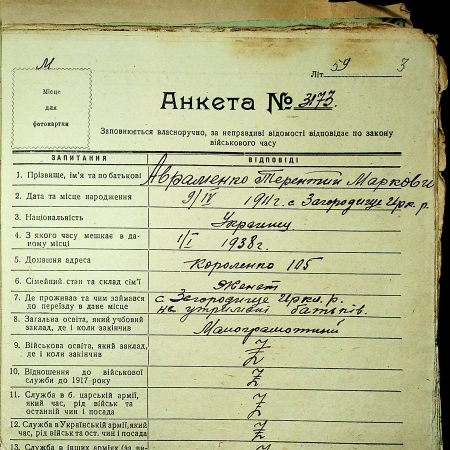 М
Літ 59 3
Місце
для
фотокартки
Анкета № 3173.
Заповнюється власноручно, за неправдиві відомості відповідає по закону
військового часу
ЗАПИТАННЯ ВІДПОВІДІ
1. Прізвище, ім'я та по батькові Авраменко Терентий Маркович
2. Дата та місце народження 9/IV 1911 г. с Загородище Ирк. р.
3. Національність Украинец
4. З якого часу мешкає в да-
ному місці 1/I 1938 г.
5. Домашня адреса Короленко 105
6. Сімейний стан та склад сім'ї Женат
7. Де проживав та чим займався
до переїзду в дане місце с Загородище Иркл. р.
на утримані батьків.
8. Загальна освіта, який учбовий
заклад, де і коли закінчив Малограмотний
9. Військова освіта, який заклад,
де і коли закінчив
10. Відношення до військової
служби до 1917 року
11. Служба в б. царській армії,
який час, рід військ та
останній чин і посада
12. Служба в Українській армії, який
час, рід військ та ост. чин і посада
13. Служба в інших арміях (за ви-